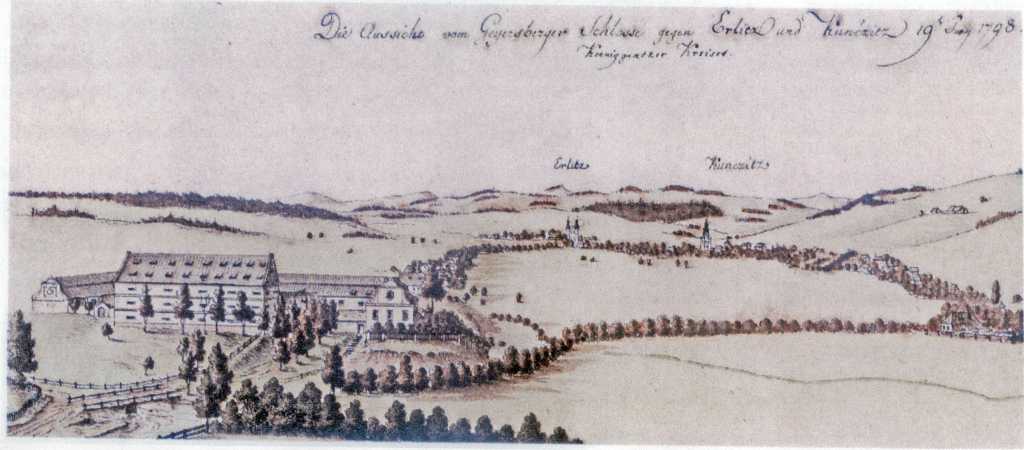 Die Aussicht vom Geyersberger Schlosse gegen Erlitz und Kunczitz 19t 1798.
Koeniggratzer Kreises.
Erlitz
Kunczitz